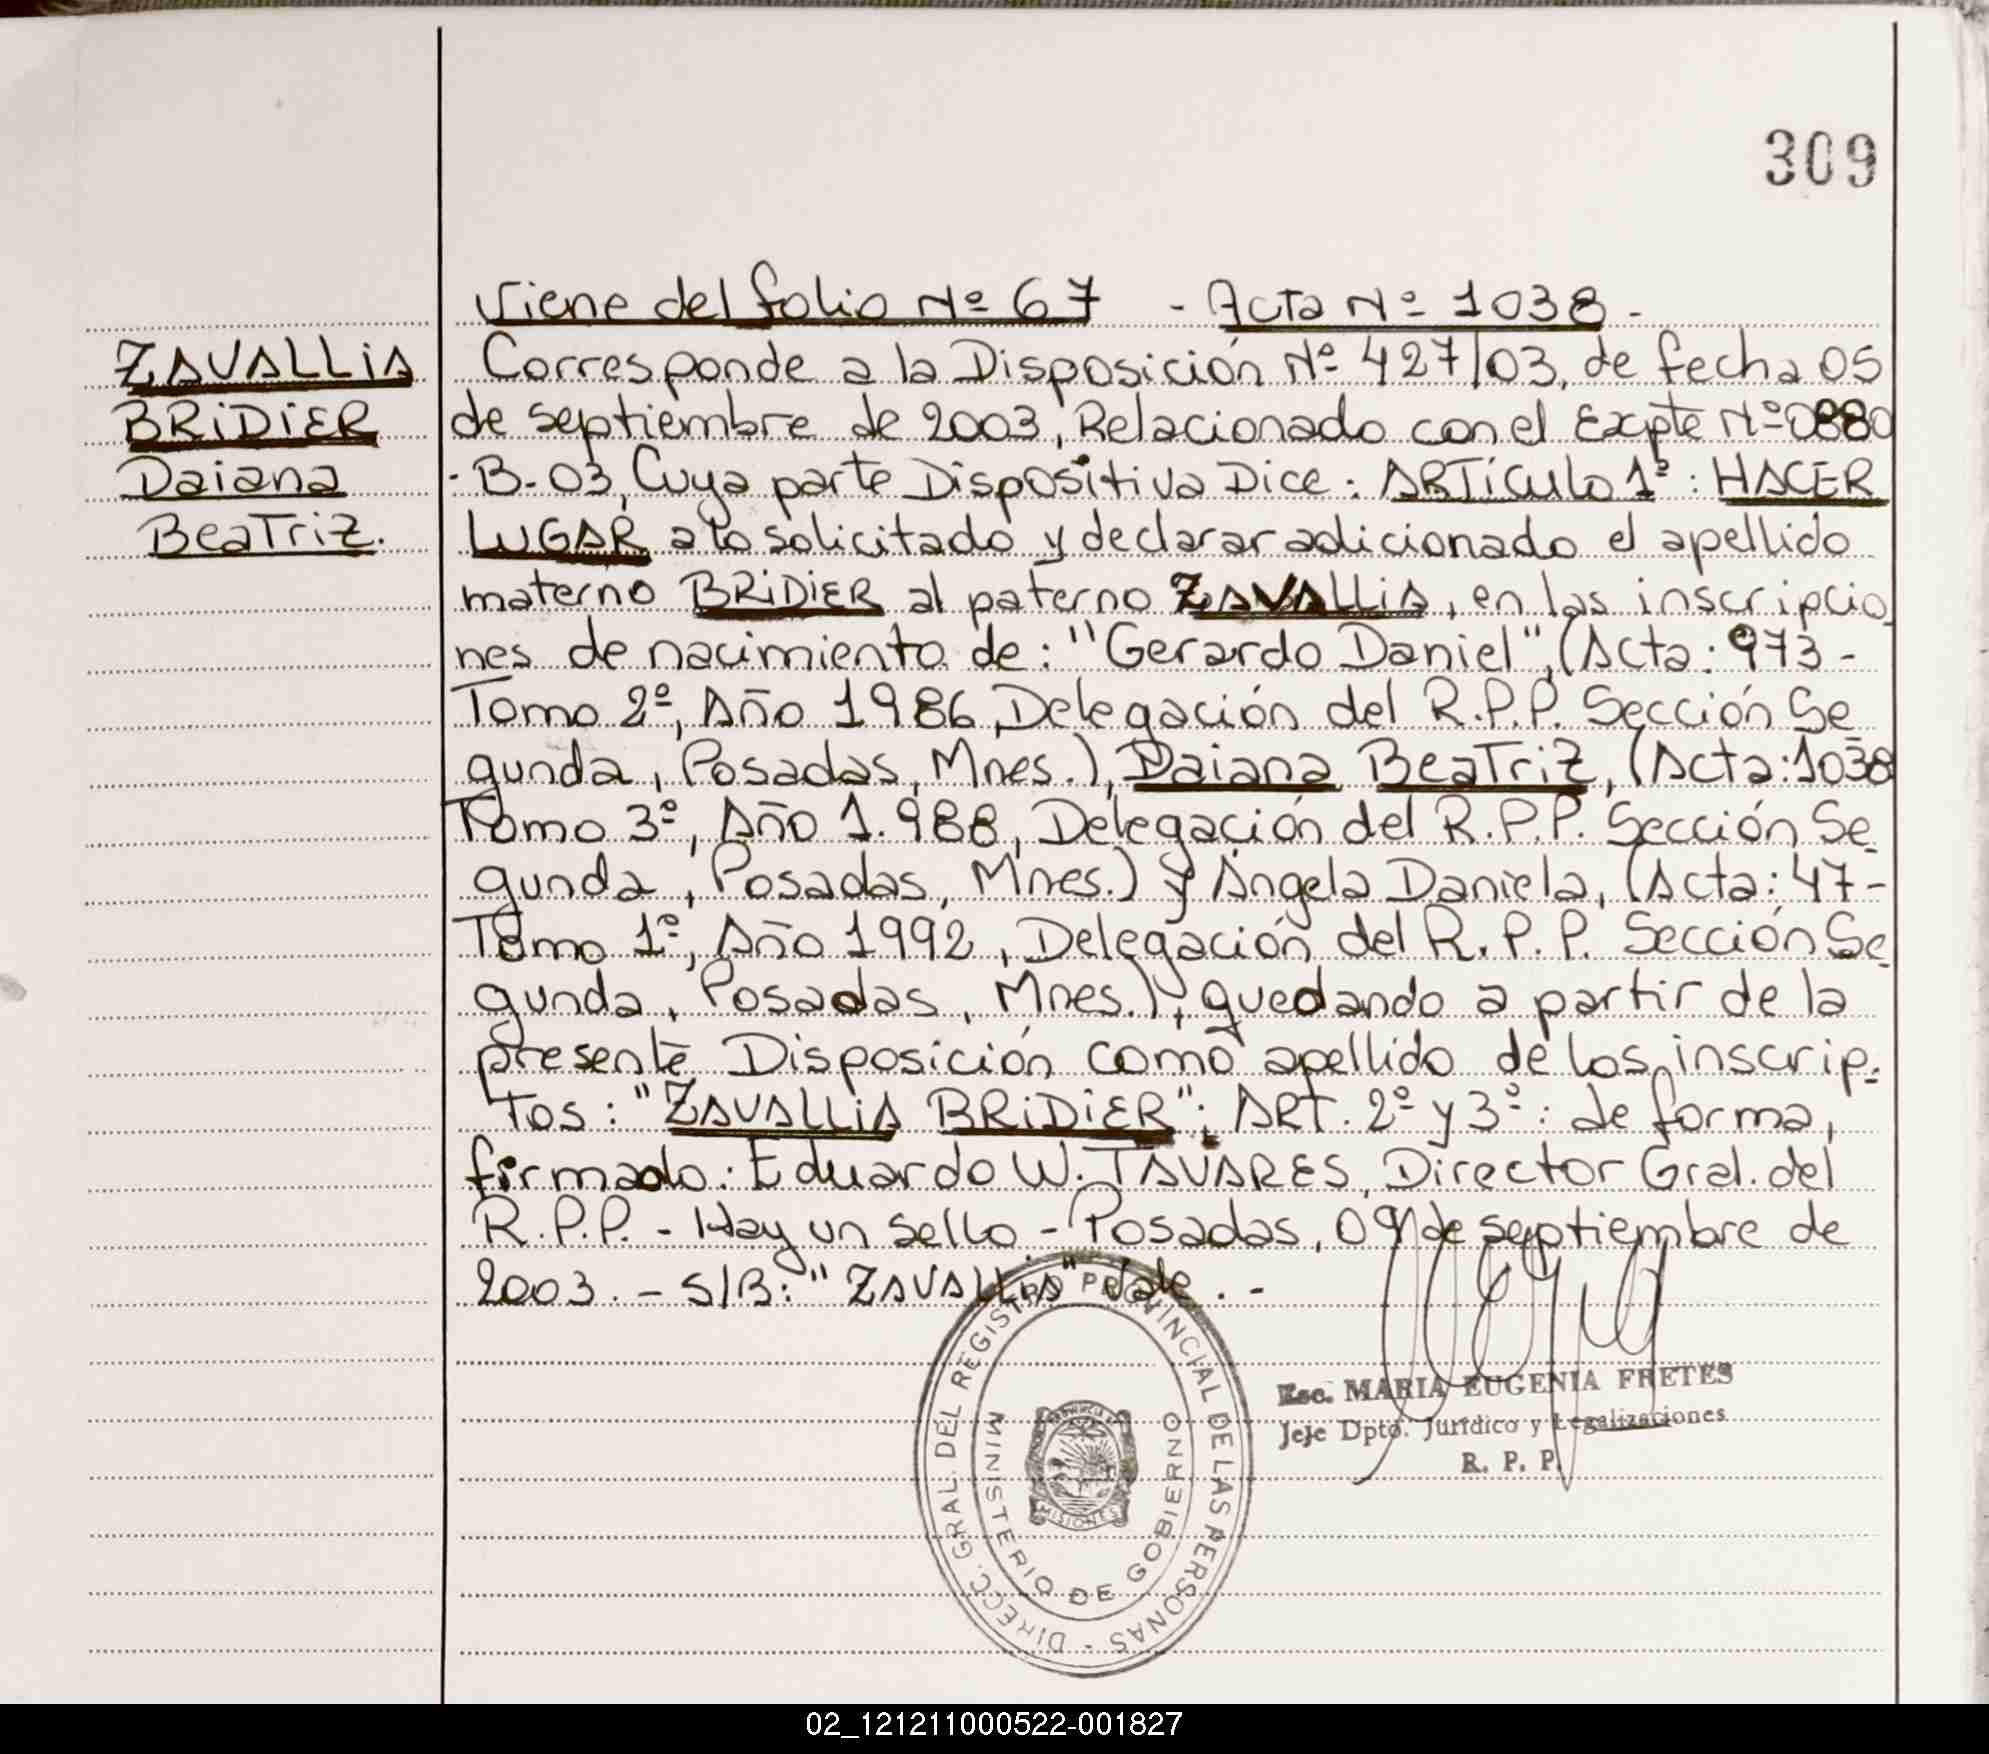 309
Viene del folio Nº 67 - Acta Nº 1038 -
ZAVALLIA
BRIDIER
Daiana
Beatriz.
Corresponde a la Disposición Nº 427/03, de fecha 05
de septiembre de 2003, Relacionado con el Expte Nº 0880
- B-03, Cuya parte Dispositiva Dice: ARTÍCULO 1º: HACER
LUGAR a lo solicitado y declarar adicionado el apellido
materno BRIDIER al paterno ZAVALLIA, en las inscripcio
nes de nacimiento de: "Gerardo Daniel", (Acta: 973 -
Tomo 2º, Año 1986, Delegación del R.P.P. Sección Se
gunda, Posadas, Mnes.), Daiana Beatriz, (Acta: 1038
Tomo 3º, Año 1.988, Delegación del R.P.P. Sección Se
gunda, Posadas, Mnes.) y Angela Daniela, (Acta: 47-
Tomo 1º, Año 1992, Delegación del R.P.P. Sección Se
gunda, Posadas, Mnes.), quedando a partir de la
presente Disposición como apellido de los inscrip-
tos: "ZAVALLIA BRIDIER"; ART. 2º y 3º: de forma,
firmado: Eduardo W. TAVARES, Director Gral. del
R.P.P. - Hay un sello - Posadas, 09 de septiembre de
2003. - S/B: "ZAVALLIA" Vale . -
DIRECC. GRAL. DEL REGISTRO PROVINCIAL DE LAS PERSONAS -
MINISTERIO DE GOBIERNO
MISIONES
Esc. MARIA EUGENIA FRETES
Jefe Dpto. Jurídico y Legalizaciones
R. P. P.
02_121211000522-001827